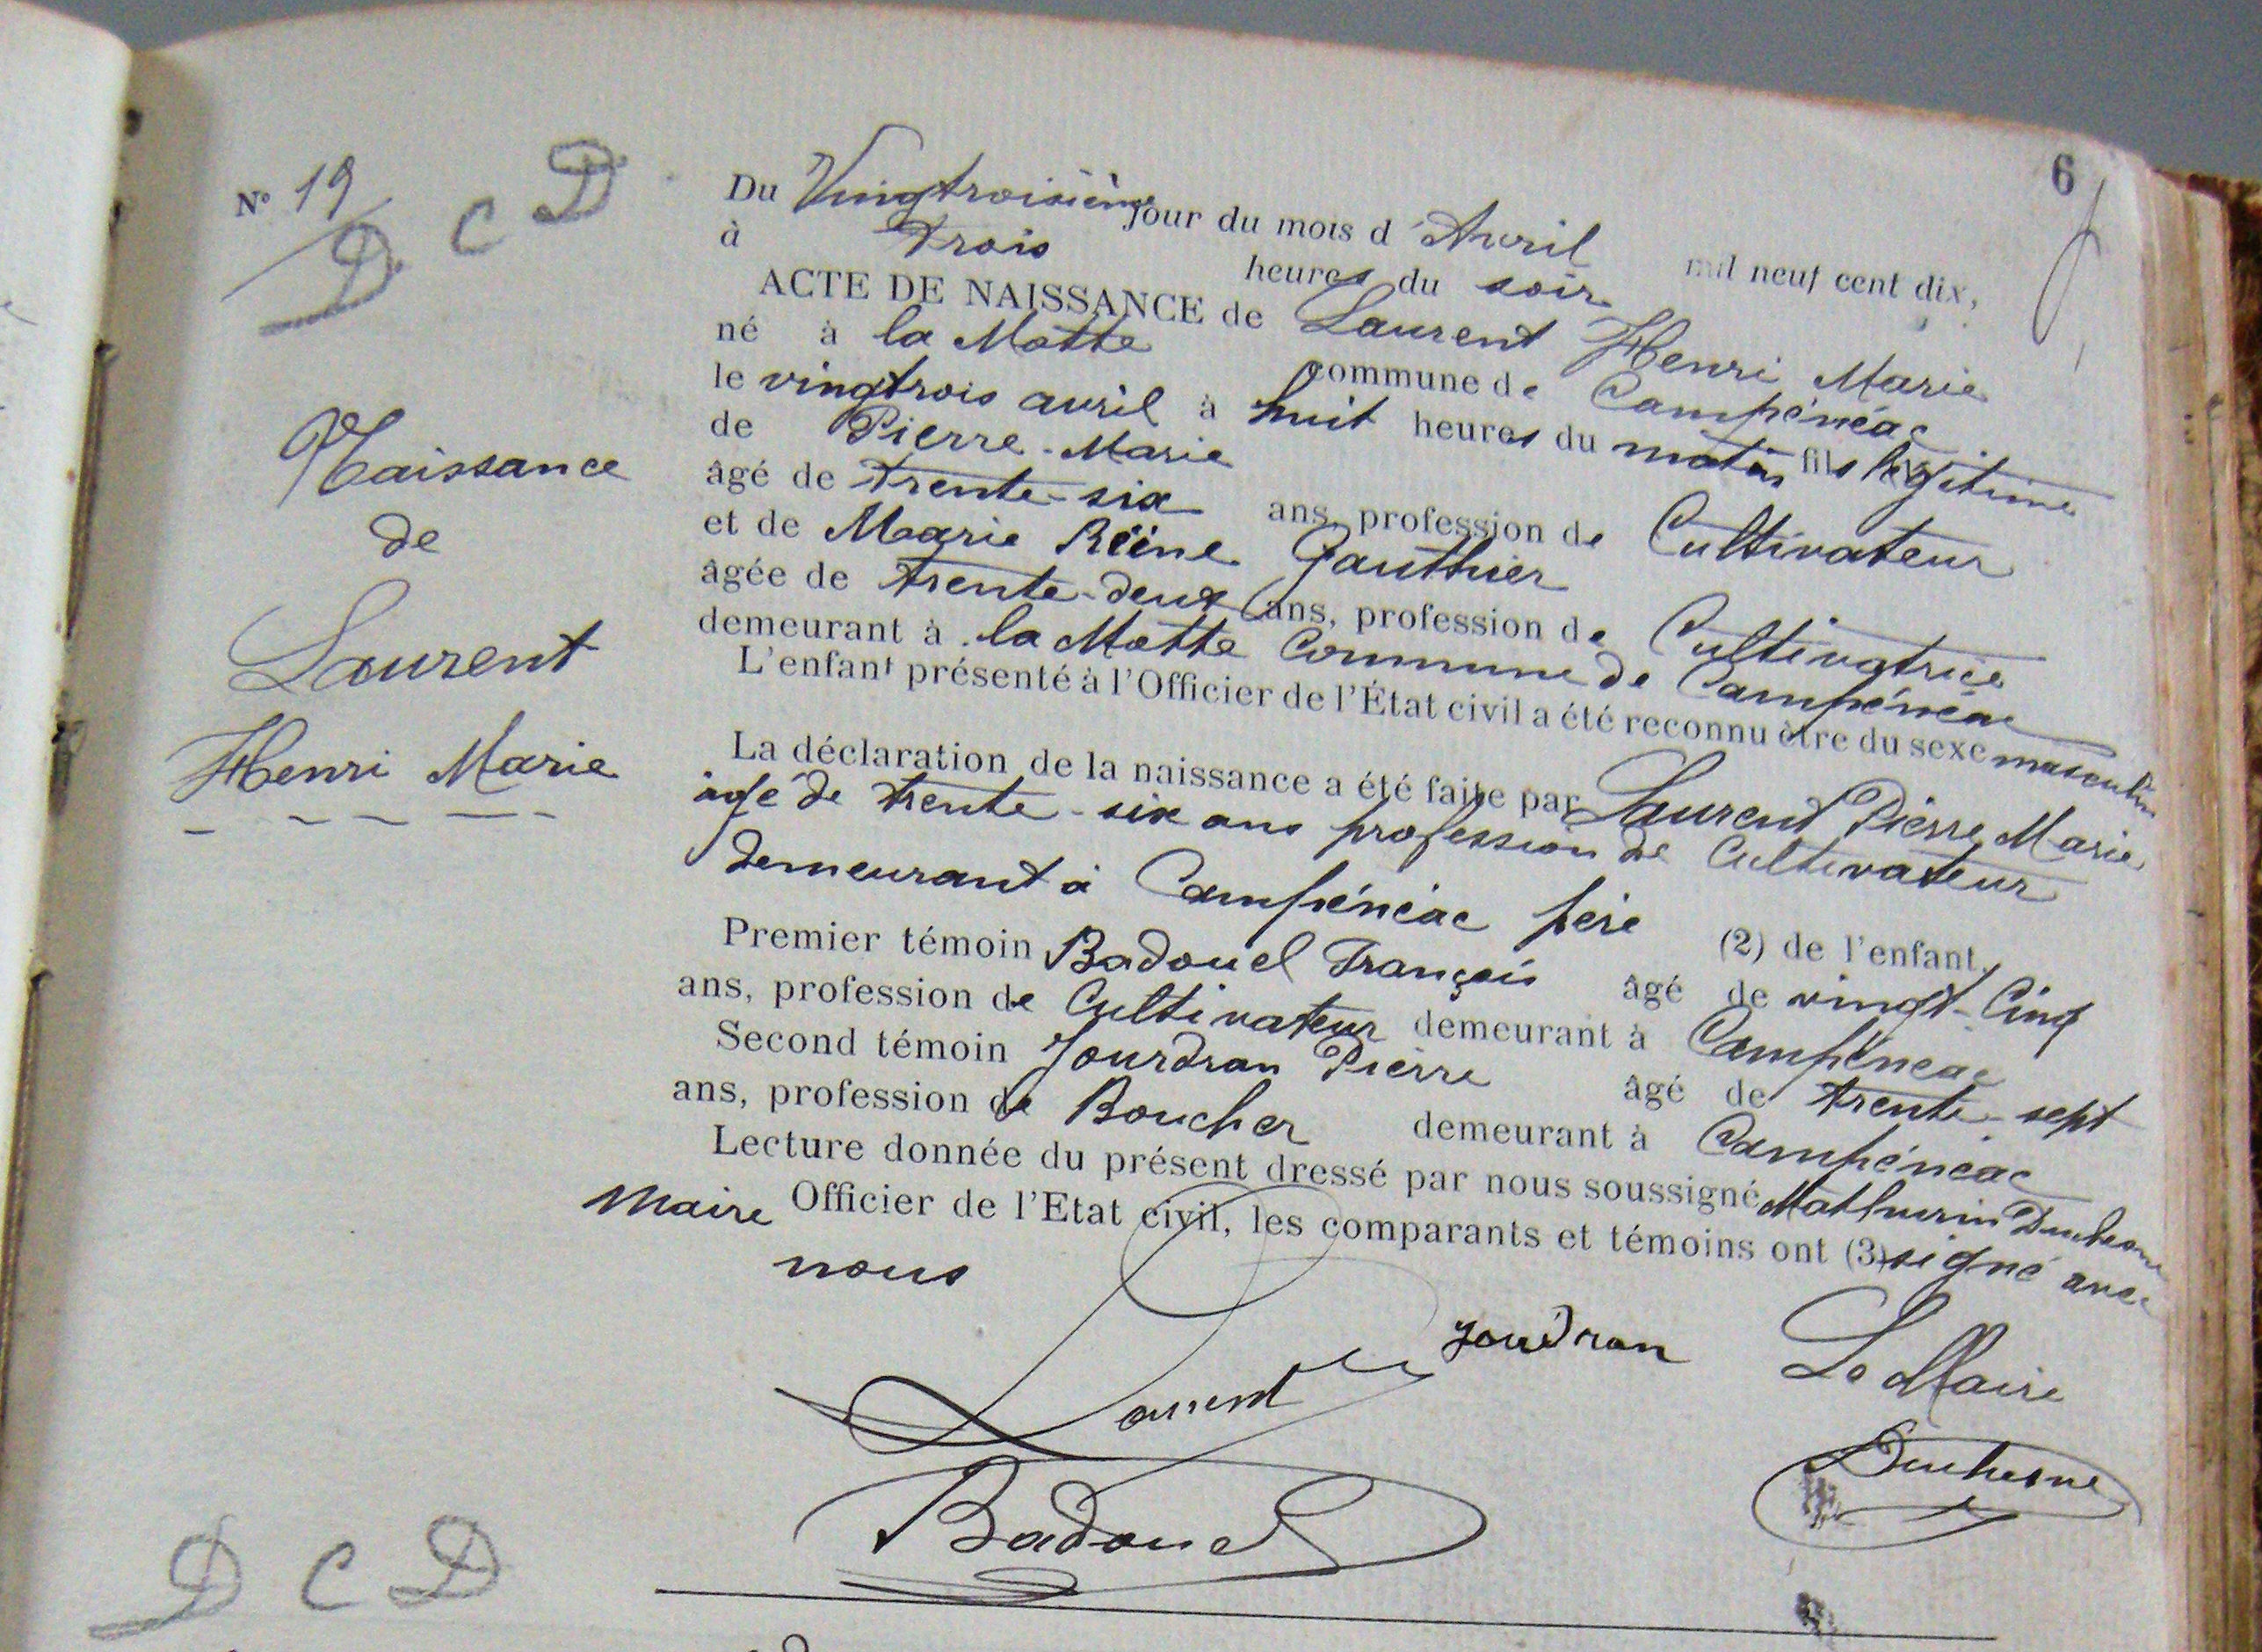 6
N° 19
D C D
Du Vingtroisième jour du mois d'Avril mil neuf cent dix,
à trois heures du soir
ACTE DE NAISSANCE de Laurent Henri Marie
né à la Motte commune de Campénéac
le vingtrois avril à huit heures du matin fils légitime
de Pierre-Marie
âgé de trente-six ans, profession de Cultivateur
et de Marie Reine Gauthier
âgée de trente-deux ans, profession de Cultivatrice
demeurant à la Motte Commune de Campénéac
L'enfant présenté à l'Officier de l'État civil a été reconnu être du sexe masculin
La déclaration de la naissance a été faite par Laurent Pierre Marie
âgé de trente-six ans profession de Cultivateur
demeurant à Campénéac père (2) de l'enfant.
Premier témoin Badouel François âgé de vingt-Cinq
ans, profession de Cultivateur demeurant à Campénéac
Second témoin Jourdran Pierre âgé de trente-sept
ans, profession de Boucher demeurant à Campénéac
Lecture donnée du présent dressé par nous soussigné Mathurin Duchesne
Maire Officier de l'Etat civil, les comparants et témoins ont (3) signé avec
nous
Naissance
de
Laurent
Henri Marie
Jourdran
Le Maire
Laurent
Duchesne
Badouel
D C D